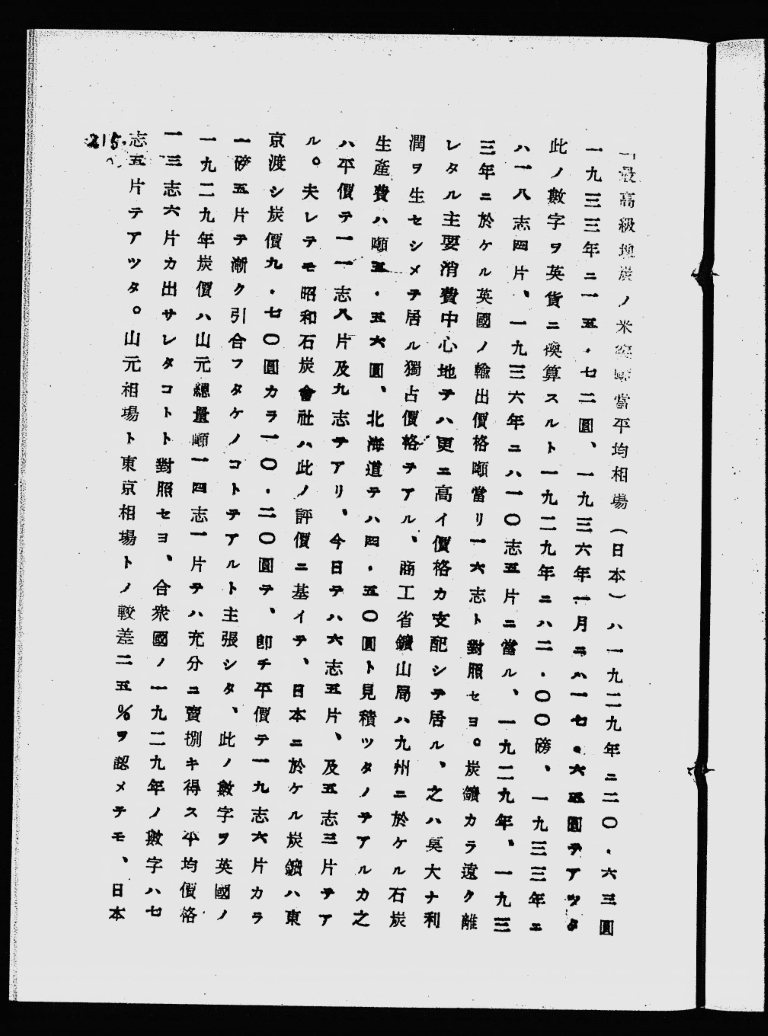 「最高級塊炭ノ米突噸當平均相場(日本)ハ一九二九年ニ二〇・六三圓
一九三三年ニ一五・七二圓、一九三六年一月ニハ一七・六五圓テアツタ
此ノ數字ヲ英貨ニ換算スルト一九二九年ニハ二・〇〇磅、一九三三年ニ
ハ一八志四片、一九三六年ニハ一〇志五片ニ當ル、一九二九年、一九三
三年ニ於ケル英國ノ輸出價格噸當リ一六志ト對照セヨ。炭鑛カラ遠ク離
レタル主要消費中心地テハ更ニ高イ價格カ支配シテ居ル、之ハ莫大ナ利
潤ヲ生セシメテ居ル獨占價格テアル、商工省鑛山局ハ九州ニ於ケル石炭
生産費ハ噸五・五六圓、北海道テハ四・五〇圓ト見積ツタノテアルカ之
ハ平價テ一一志八片及九志テアリ、今日テハ六志五片、及五志三片テア
ル。夫レテモ昭和石炭會社ハ此ノ評價ニ基イテ、日本ニ於ケル炭鑛ハ東
京渡シ炭價九・七〇圓カラ一〇・二〇圓テ、卽チ平價テ一九志六片カラ
一磅五片テ漸ク引合フタケノコトテアルト主張シタ、此ノ數字ヲ英國ノ
一九二九年炭價ハ山元總量噸一四志一片テハ充分ニ賣捌キ得ス平均價格
一三志六片カ出サレタコトト對照セヨ、合衆國ノ一九二九年ノ數字ハ七
志五片テアツタ。山元相場ト東京相場トノ較差二五%ヲ認メテモ、日本
215.